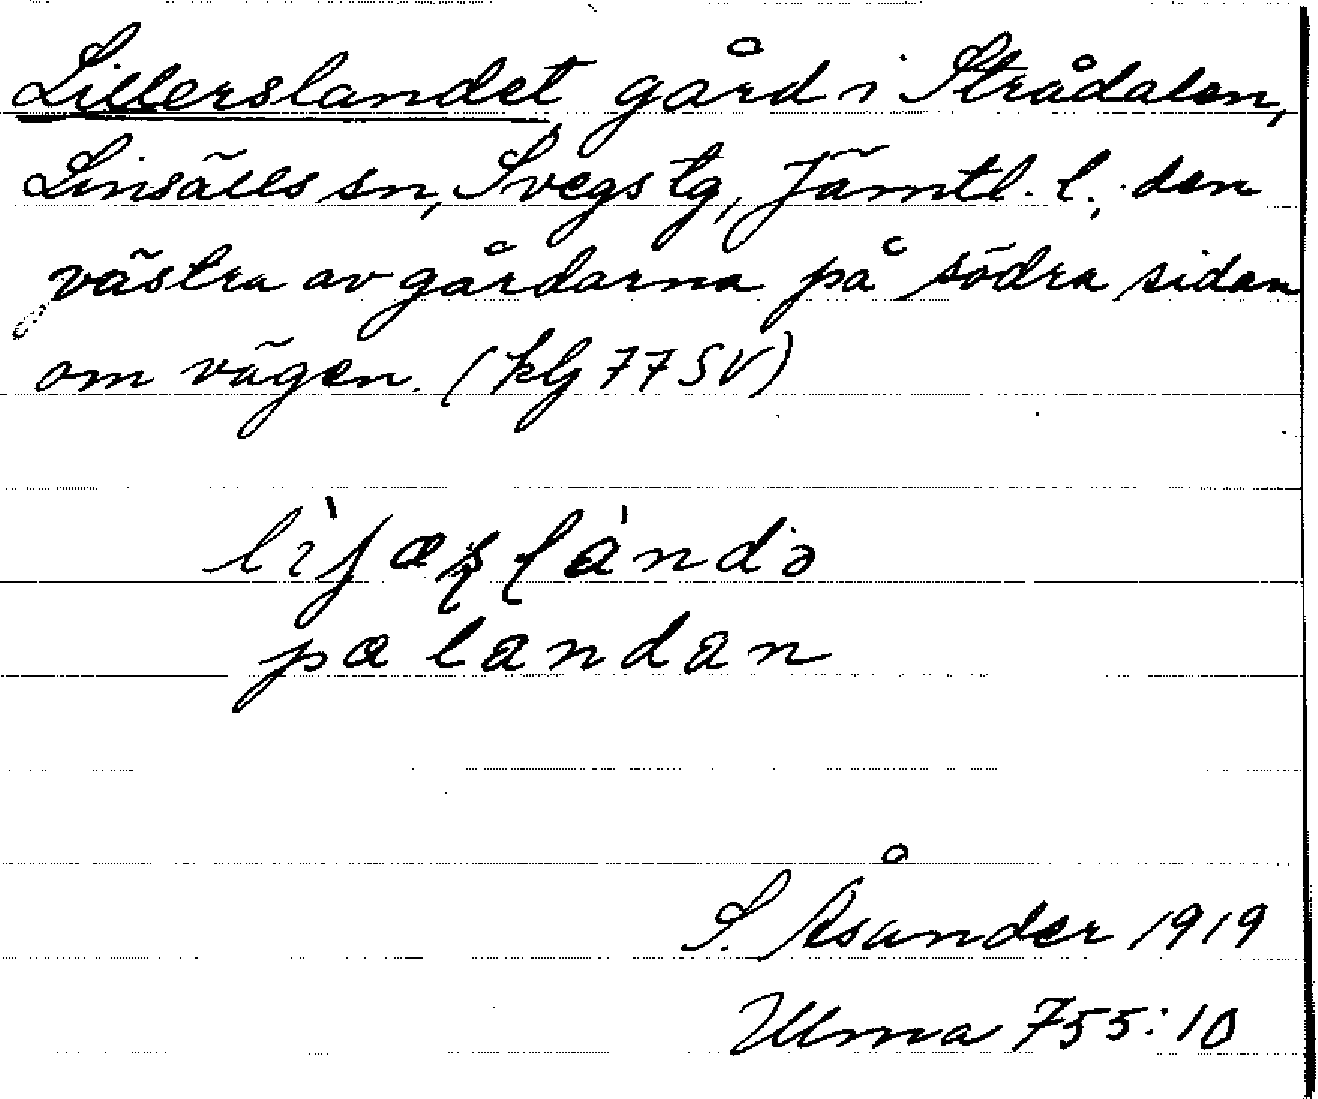 Lillerslandet gård i Strådalen,
Linsälls sn, Svegs tg, Jämtl. l.; den
västra av gårdarna på södra sidan
om vägen. (kbj 77 SV)
pa landan
S. Åsander 1919
Ulma 755:10